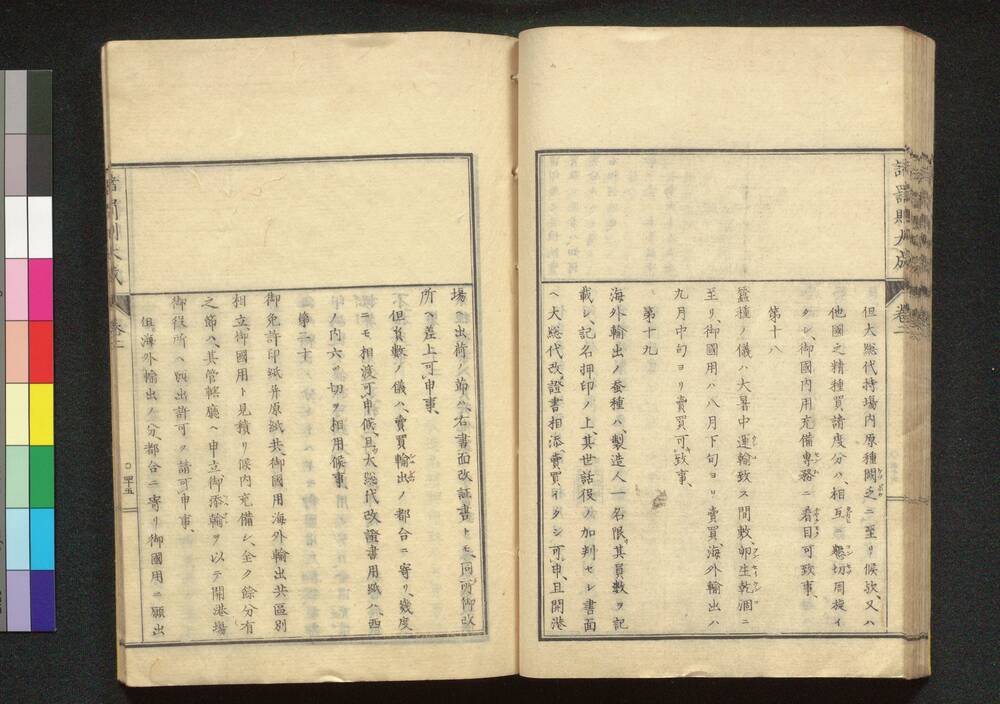 諸罰則大成
卷二
但大總代持場内原種闕乏ニ至リ候歟、又ハ
他國之精種買請度分ハ、相互ニ懇切周旋イ
タシ、御國内用充備專務ニ着目可致事、
第十八
蠶種ノ儀ハ大暑中運輸致ス間敷、卵生乾涸ニ
至リ、御國用ハ八月下旬ヨリ賣買、海外輸出ハ
九月中旬ヨリ賣買可致事、
第十九
海外輸出ノ蚕種ハ、製造人一名限、其員數ヲ記
載シ、記名押印ノ上、其世話役ノ加判セシ書面
ヘ大總代改證書相添、賣買イタシ可申、且開港
場ヘ出荷ノ節ハ、右書面改証書トモ、同所御改
所ヘ差上可申事、
但員數ノ儀ハ、賣買輸出ノ都合ニ寄リ、幾度
ニモ相渡可申候、且大總代改證書用紙ハ西
ノ内六ツ切ヲ相用候事、
第二十
御免許印紙并原紙共、御國用海外輸出共區別
相立、御國用ト見積リ候内充備シ、全ク餘分有
之節ハ、其管轄廳ヘ申立、御添翰ヲ以テ開港場
御役所ヘ願出許可ヲ請可申事、
但海外輸出ノ分、都合ニ寄リ御國用ニ願出
卷二
〇四十五